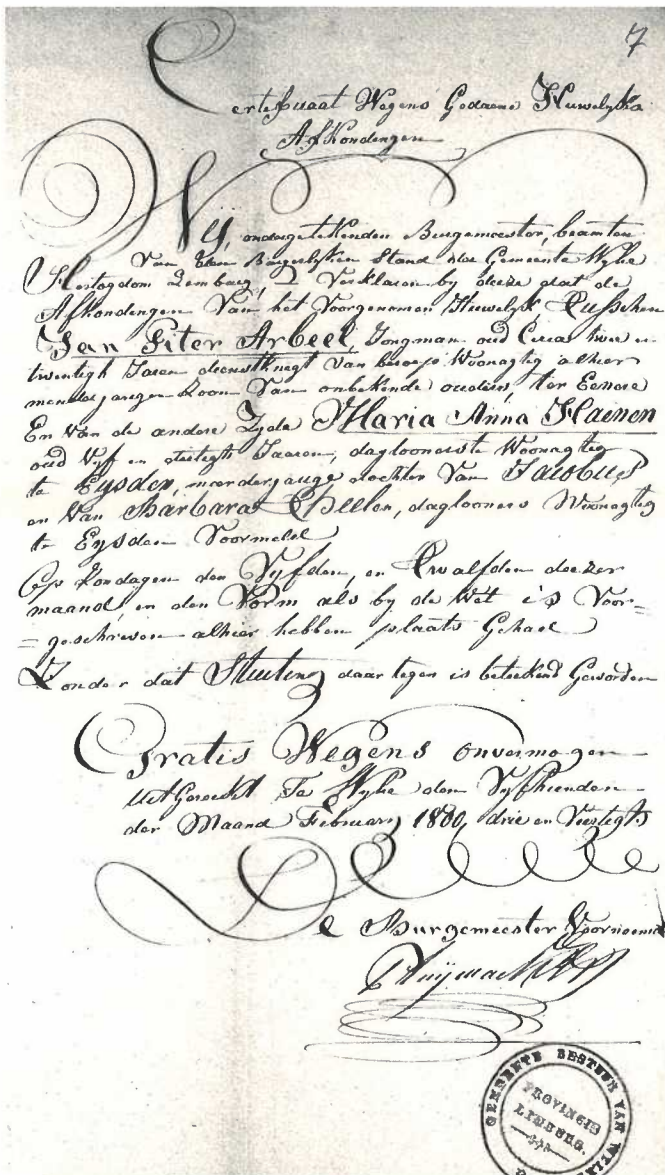 7
Certificaat Wegens Gedaene Huwelyks
Afkondingen
Wy, ondergetekenden Burgemeester, beamten
Van den Burgerlyken Stand der Gemeente Wylre
Hertogdom Limburg, Verklaren by deeze dat de
Afkondingen Van het Voorgenomen Huwelyk, Tusschen
Jan Piter Arbeel, Jongman oud Circa twee en
twentigh Jaren dienstknegt Van beroep Woonagtig alhier
menderjarigen Zoon Van onbekende ouders, ter Eenere
En Van de andere Zyde Maria Anna Haenen
oud Vyf en dertigh Jaaren, dagloonerste Woonagtig
te Eysden, meerderjarige dochter Van Jacobus
en Van Barbara Theelen, daglooners Woonagtig
te Eysden Voormeld
Op Zondagen den Vyfden, en Twalfden deezer
maand, en den Vorm als by de Wet is Voor=
=geschreven alhier hebben plaats Gehad
Zonder dat Stuiting daar tegen is beteekend Geworden
Gratis Wegens onvermogen
uitGereikt Te Wylre den Vyfthienden
der Maand February 1800 drie en Viertigh
De Burgemeester Voornoemd
GEMEENTE BESTUUR VAN
PROVINCIE
LIMBURG.